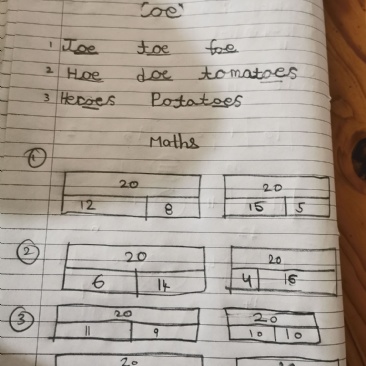 'oe'
1 Joe toe foe
2 Hoe doe tomatoes
3 Heroes Potatoes
Maths
1 20 20
12 8 15 5
2 20 20
6 14 4 16
3 20 20
11 9 10 10
20